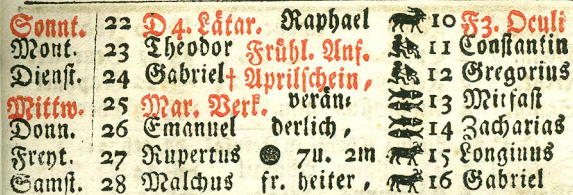 Sonnt. 22 D 4. Lätar. Raphael 10 F3. Oculi
Mont. 23 Theodor Frühl. Anf. 11 Constantin
Dienst. 24 Gabriel † Aprilschein, 12 Gregorius
Mittw. 25 Mar. Verk. verän- 13 Mitfast
Donn. 26 Emanuel derlich, 14 Zacharias
Freyt. 27 Rupertus 7u. 2m 15 Longinus
Samst. 28 Malchus fr. heiter, 16 Gabriel